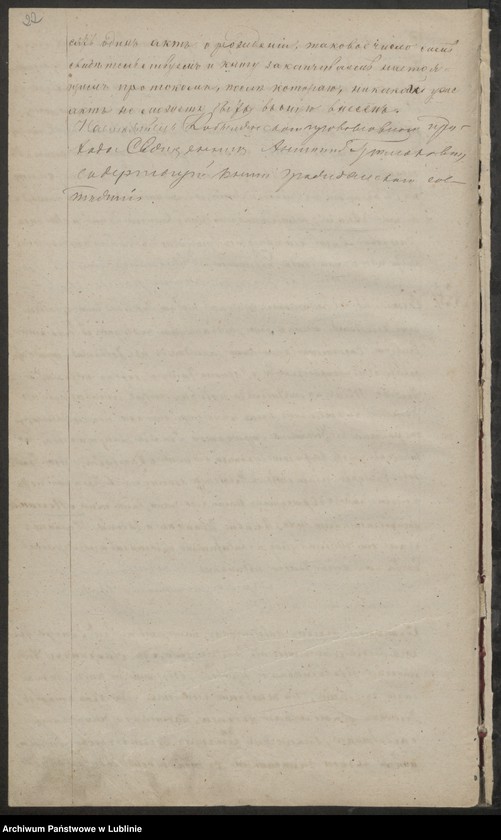 22
одинъ актъ о рожденіи, таковое число симъ
свидѣтельствуемъ и книгу заканчиваемъ настоя-
щимъ протоколомъ, послѣ котораго, никакой уже
актъ не можетъ быть внесенъ.
Настоятель православнаго при-
хода Священникъ Антоній
содержащій книги гражданскаго сос-
тоянія.
Archiwum Państwowe w Lublinie